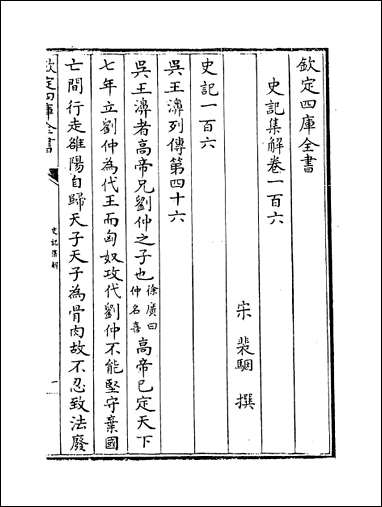 欽定四庫全書
史記集解卷一百六
宋 裴駰 撰
史記一百六
吳王濞列傳第四十六
吳王濞者高帝兄劉仲之子也徐廣曰仲名喜高帝已定天下
七年立劉仲為代王而匈奴攻代劉仲不能堅守棄國
亡間行走雒陽自歸天子天子為骨肉故不忍致法廢
欽定四庫全書
史記集解
一